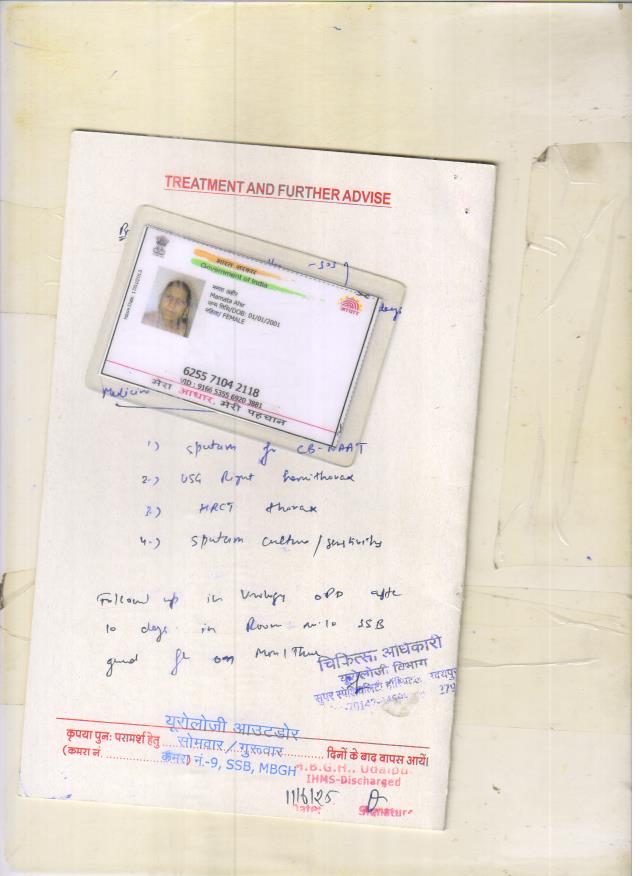 TREATMENT AND FURTHER ADVISE
Rx
- SOS
days
भारत सरकार
Government of India
ममता अहीर
Mamata Ahir
जन्म तिथि/DOB: 01/01/2001
महिला/ FEMALE
आधार
6255 7104 2118
VID : 9166 5355 6920 3881
मेरा आधार, मेरी पहचान
Medicine
1.) Sputum for CB-NAAT
2.) USG Right hemithorax
3.) HRCT thorax
4.) Sputum culture/sensitivity
Follow up in Urology OPD after
10 days in Room no. 10 SSB
on Mon/Thu
चिकित्सा अधिकारी
यूरोलोजी विभाग
सुपर स्पेशियलिटी
यूरोलोजी आउटडोर
कृपया पुनः परामर्श हेतु सोमवार/गुरूवार दिनों के बाद वापस आयें।
(कमरा नं. कमरा नं.-9, SSB, MBGH
M.B.G.H., Udaipur
IHMS-Discharged
11/6/25
Date Signature